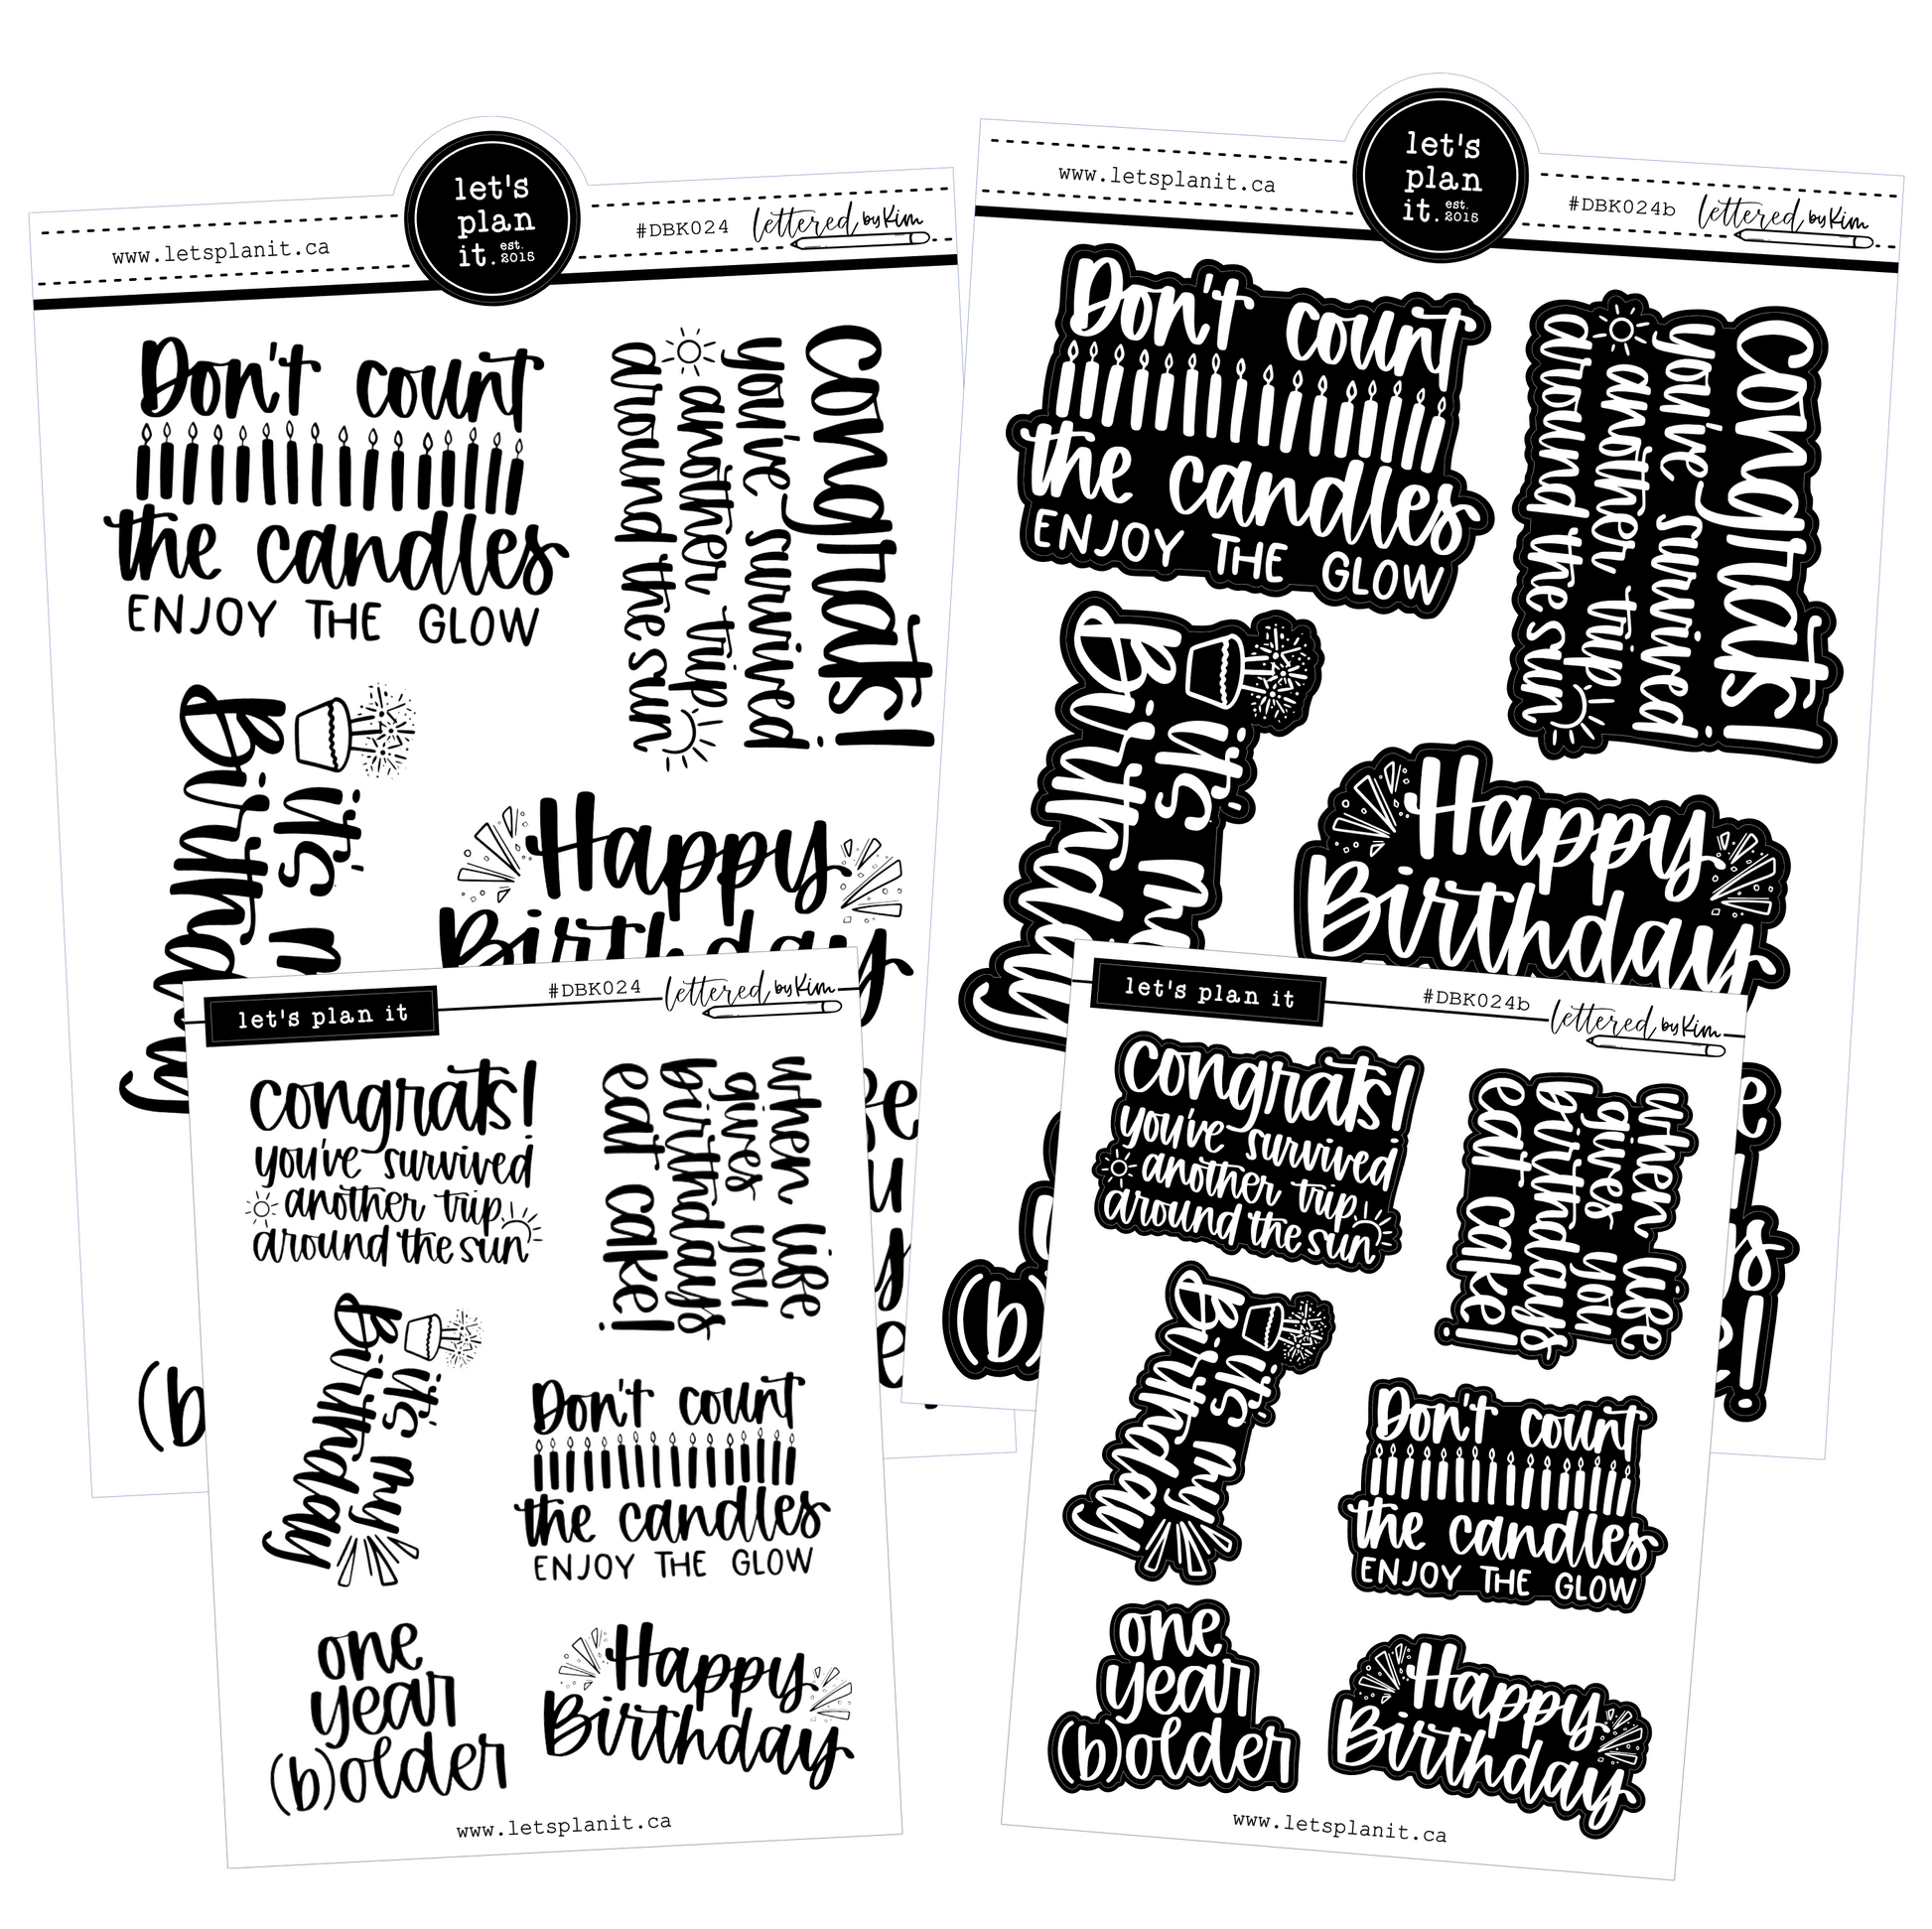 let's
plan
it. est.
2015
www.letsplanit.ca
#DBK024
lettered by Kim
Don't count
the candles
ENJOY THE GLOW
Congrats!
you've survived
another trip
around the sun
it's m
Birthday
Happy
Birthday
(b
let's
plan
it. est.
2015
www.letsplanit.ca
#DBK024b
lettered by Kim
Don't count
the candles
ENJOY THE GLOW
Congrats!
you've survived
another trip
around the sun
it's my
Birthday
Happy
Birthday
(b)
let's plan it
#DBK024
lettered by Kim
congrats!
you've survived
another trip
around the sun
when life
gives you
birthdays
eat cake!
it's my
Birthday
Don't count
the candles
ENJOY THE GLOW
one
year
(b)older
Happy
Birthday
www.letsplanit.ca
let's plan it
#DBK024b
lettered by Kim
congrats!
you've survived
another trip
around the sun
when life
gives you
birthdays
eat cake!
it's my
Birthday
Don't count
the candles
ENJOY THE GLOW
one
year
(b)older
Happy
Birthday
www.letsplanit.ca